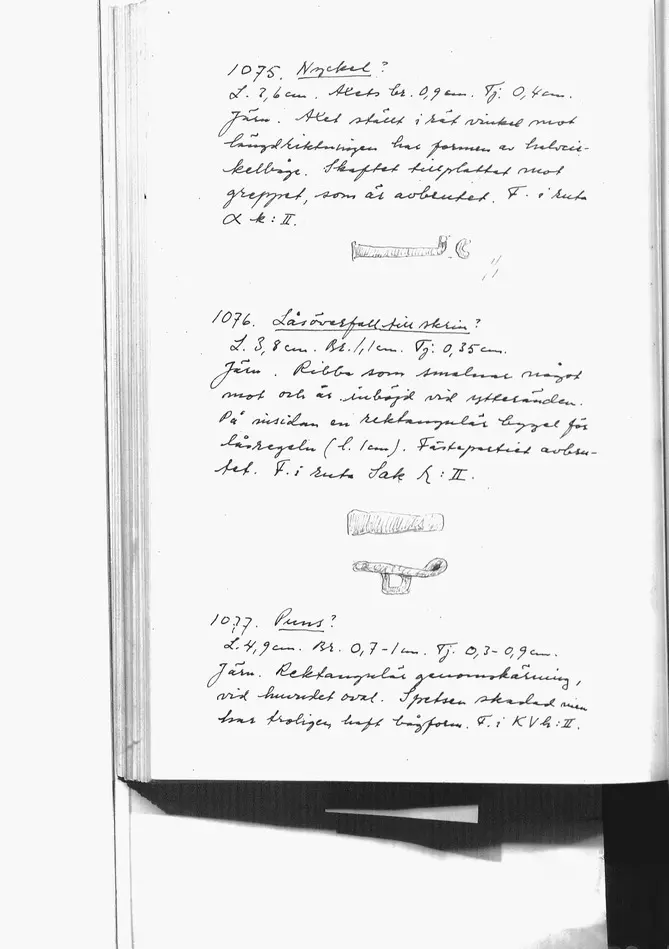 1075. Nyckel?
L. 3,6 cm. Axets br. 0,9 cm. Tj. 0,4 cm.
Järn. Axet ställt i rät vinkel mot
längdriktningen har formen av halvcir-
kelbåge. Skaftet tillplattat mot
greppet, som är avbrutet. F. i ruta
α k : II.
1076. Låsöverfall till skrin?
L. 3,8 cm. Br. 1,1 cm. Tj. 0,35 cm.
Järn. Ribba som smalnar något
mot och är inböjd vid ytteränden.
På insidan en rektangulär bygel för
låsregeln (l. 1 cm). Fästepartiet avbru-
tet. F. i ruta Sak : II.
1077. Puns?
L. 4,9 cm. Br. 0,7-1 cm. Tj. 0,3-0,9 cm.
Järn. Rektangulär genomskärning,
vid huvudet oval. Spetsen skadad men
har troligen haft bågform. F. i KV h : II.